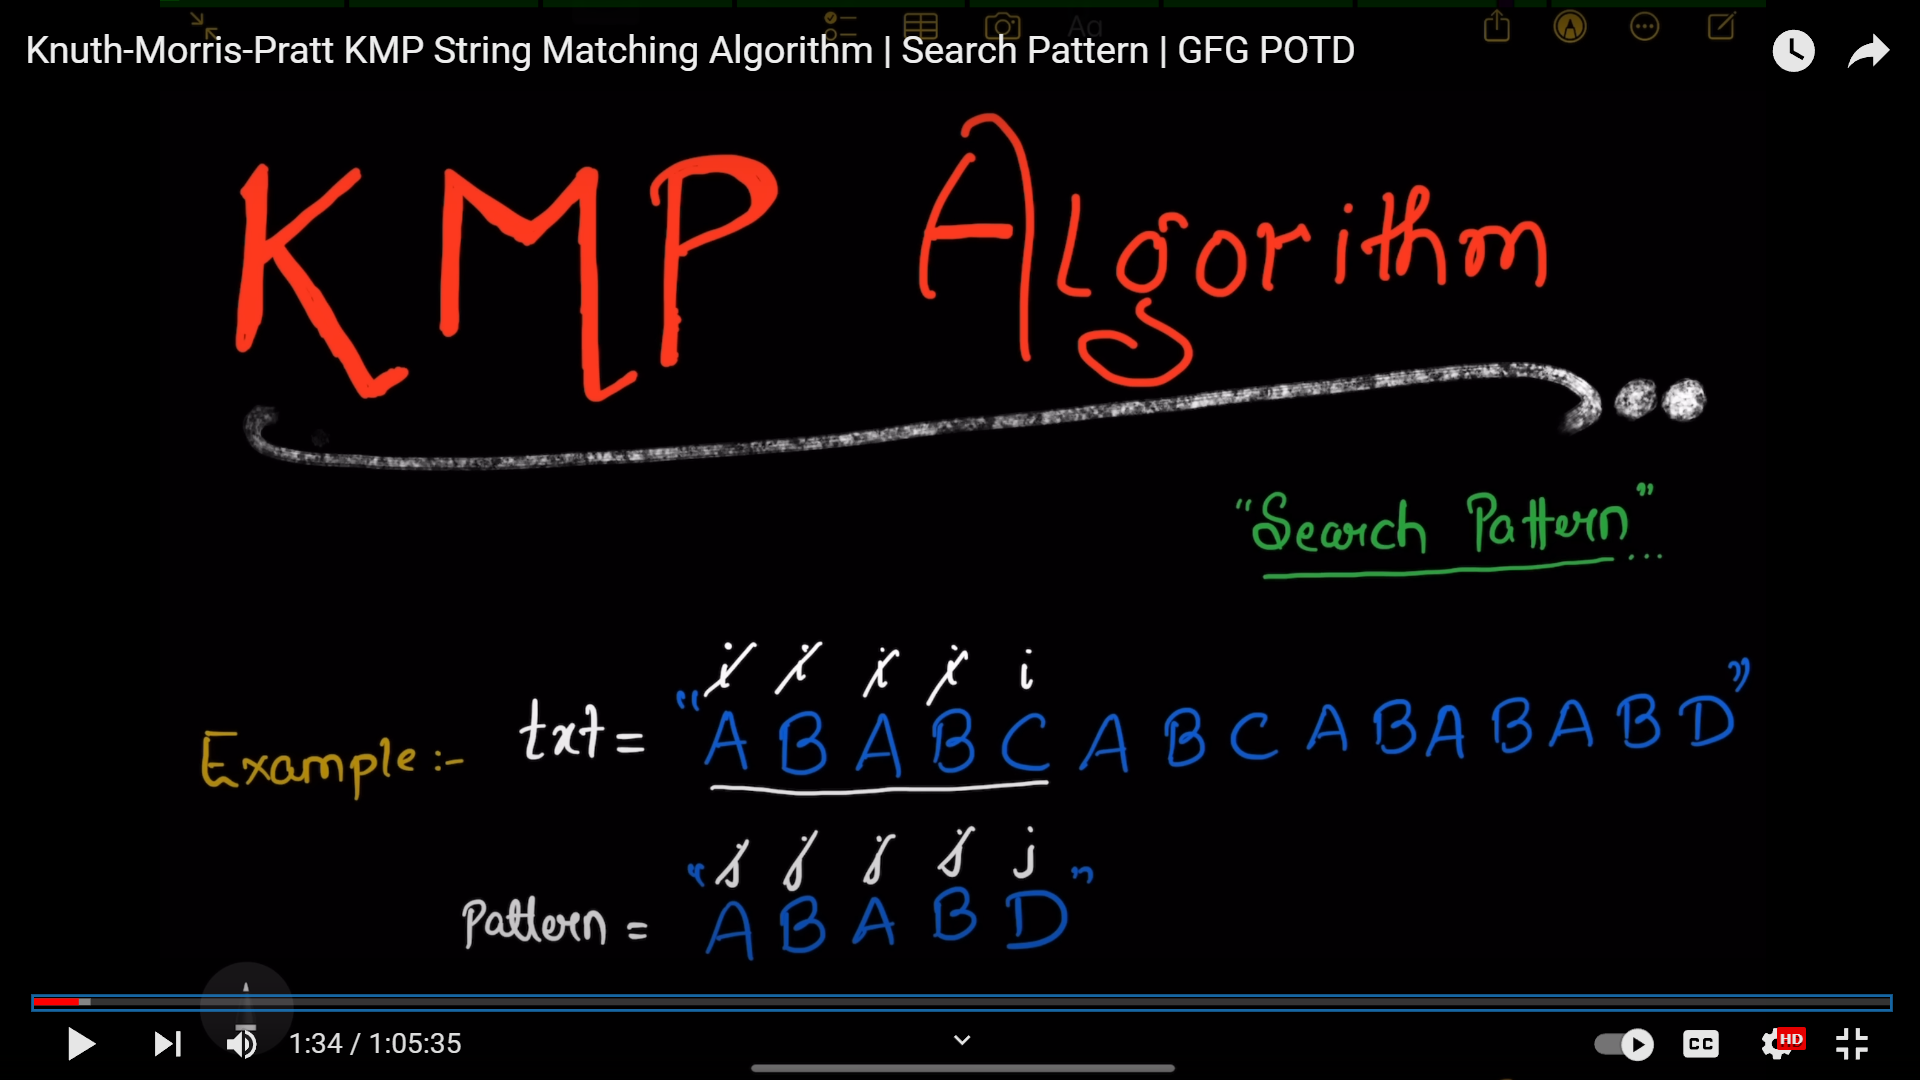 Aa
Knuth-Morris-Pratt KMP String Matching Algorithm | Search Pattern | GFG POTD
KMP Algorithm
"Search Pattern"...
i i i i i
Example :- txt = "ABABCABCABABABD"
j j j j j
Pattern = "ABABD"
1:34 / 1:05:35
CC
HD